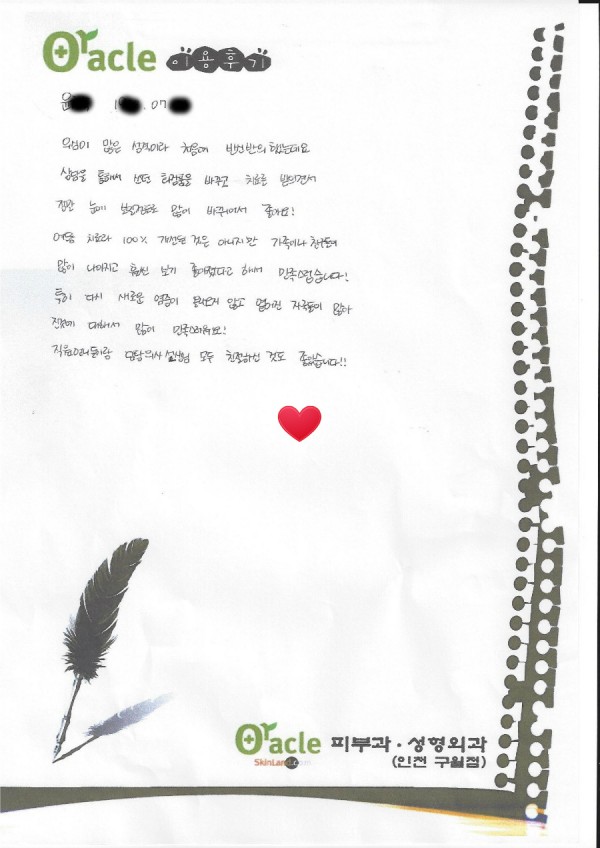 Oracle 이용후기
윤 1 .07
의심이 많은 성격이라 처음에 반신반의 했는데요
상담을 통해서 쓰던 화장품을 바꾸고 치료를 받으면서
진짜 눈에 보일정도로 많이 바뀌어서 좋아요!
여드름 치료라 100% 개선된 것은 아니지만 가족이나 친구들이
많이 나아지고 훨씬 보기 좋아졌다고 해서 만족스럽습니다!
특히 다시 새로운 염증이 올라오지 않고 옅어진 자국들이 많아
진것에 대해서 많이 만족스러워요!
직원언니들이랑 담당의사 선생님 모두 친절하신 것도 좋았습니다!!
Oracle 피부과·성형외과
SkinLand.com (인천 구월점)